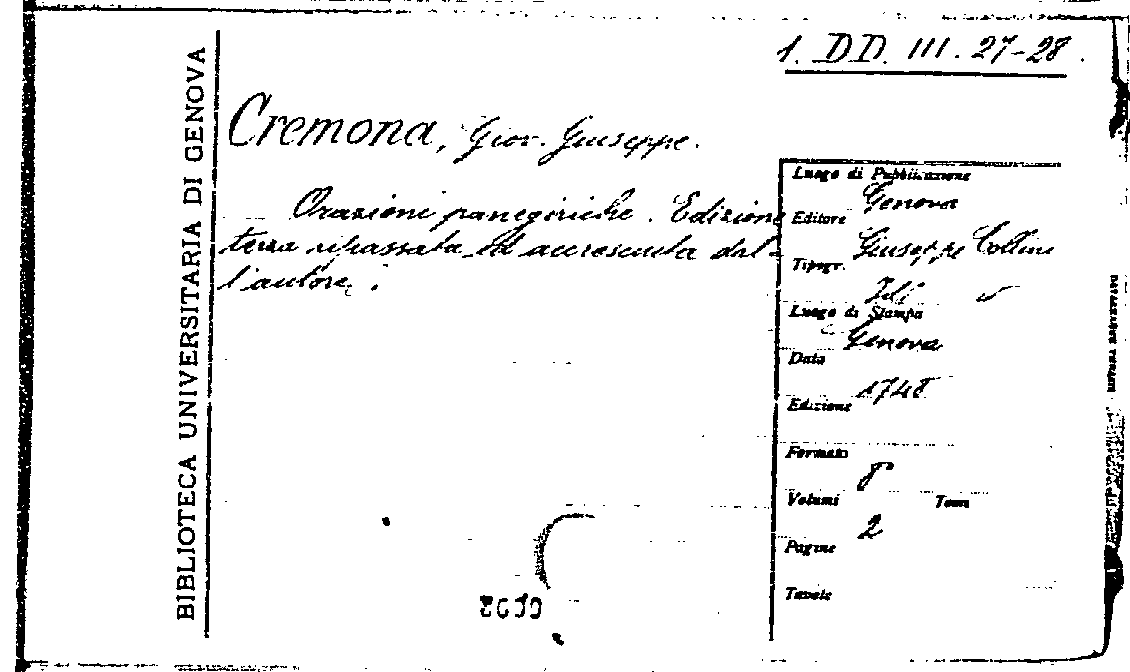 1. DD. III. 27-28.
BIBLIOTECA UNIVERSITARIA DI GENOVA
Cremona, Giov. Giuseppe.
Orazioni panegiriche. Edizione
terza ripassata ed accresciuta dal-
l'autore.
Luogo di Pubblicazione
Genova
Editore
Giuseppe
Tipogr.
Luogo di Stampa
Genova
Data
1748
Edizione
Formato
8°
Volumi Tomi
2
Pagine
Tavole